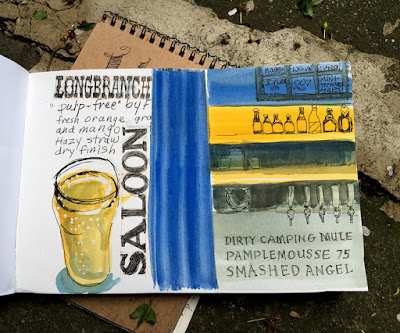 LONGBRANCH
"pulp-free" by F
fresh orange gra
and mango
Hazy straw
dry finish
SALOON
007
MINI
DIRTY CAMPING MULE
PAMPLEMOUSSE 75
SMASHED ANGEL